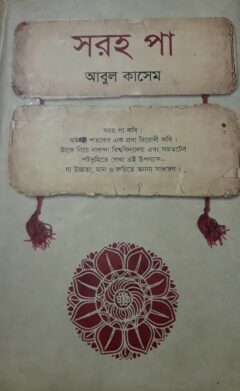 সরহ পা
আবুল কাসেম
সরহ পা কবি ।
শতকের এক প্রথা বিরোধী কবি ।
তাঁকে নিয়ে নালন্দা বিশ্ববিদ্যালয় এবং সমতটের
পটভূমিতে লেখা এই উপন্যাস–
যা উচ্চতা, মান ও রুচিতে অনন্য সাধারণ ।